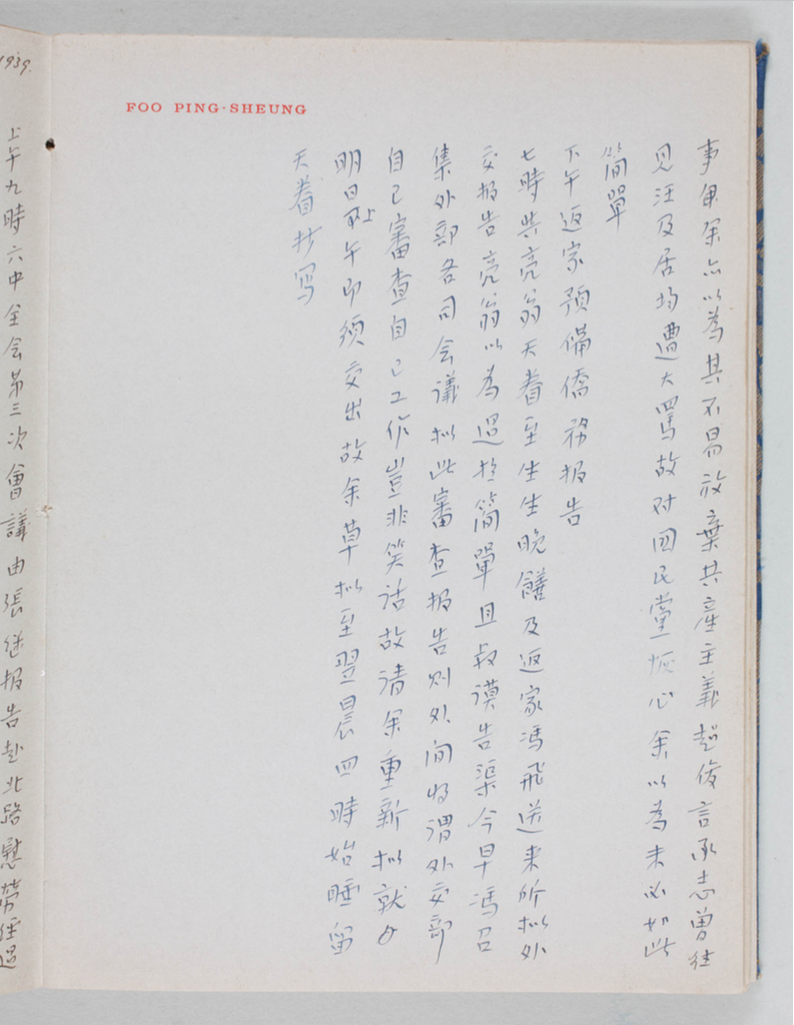 1939.
上午九時六中全会第三次會議由張继报告赴北路慰勞经過
FOO PING-SHEUNG
事使余亦以為其不易放棄共產主義趙俊言承志曾往
见汪及居均遭大罵故对囯民黨恢心余以為未必如此
簡單
下午返家預備僑務报告
七時共亮翁天眷至生生晚饍及返家馮飛送来所拟外
交报告亮翁以為過於簡單且叔謨告渠今早馮召
集外部各司会議拟此審查报告则外间将谓外交部
自己審查自己工作豈非笑话故请余重新拟就
明日上午即须交出故余草拟至翌晨四時始睡留
天眷抄写